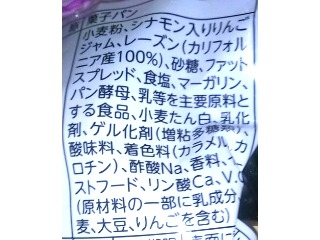 菓子パン
小麦粉、シナモン入りりんご
ジャム、レーズン(カリフォル
ニア産100%)、砂糖、ファット
スプレッド、食塩、マーガリン、
パン酵母、乳等を主要原料と
する食品、小麦たん白、乳化
剤、ゲル化剤(増粘多糖類)、
酸味料、着色料(カラメル、カ
ロチン)、酢酸Na、香料、イ
ストフード、リン酸Ca、V.C
(原材料の一部に乳成分
麦、大豆、りんごを含む)